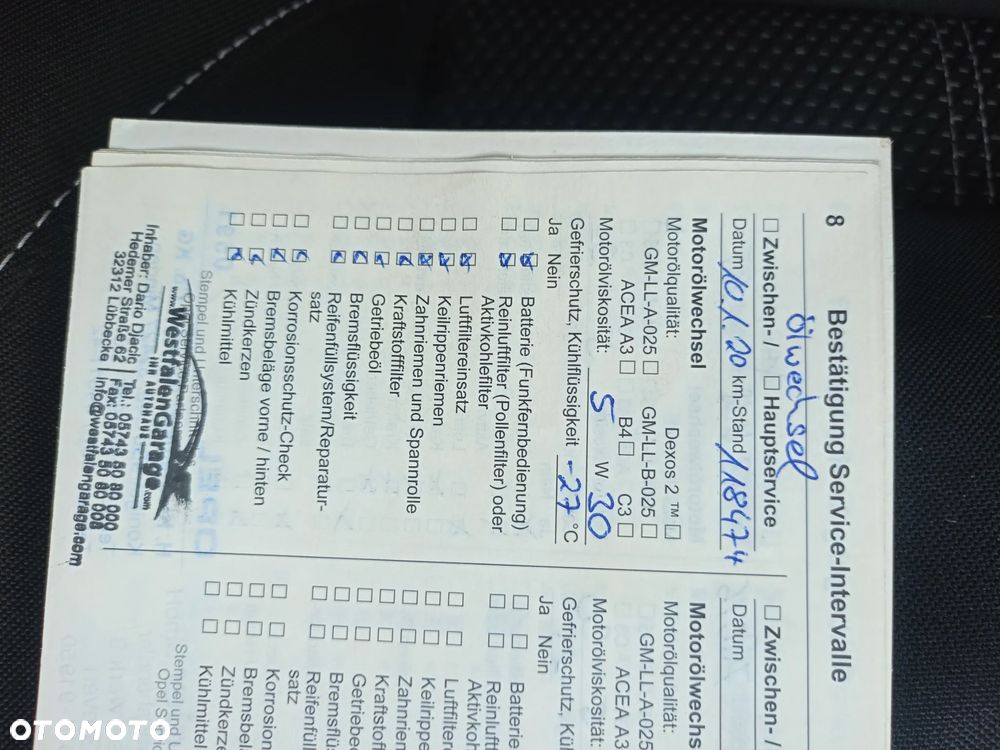 8 Bestätigung Service-Intervalle
Ölwechsel
☐ Zwischen- / ☐ Hauptservice
Datum 10.1.20 km-Stand 118474
Motorölwechsel
Motorölqualität: Dexos 2™ ☐
GM-LL-A-025 ☐ GM-LL-B-025 ☐
ACEA A3 ☐ B4 ☐ C3 ☐
Motorölviskosität: 5 W 30
Gefrierschutz, Kühlflüssigkeit -27 °C
Ja Nein
Batterie (Funkfernbedienung)
Reinluftfilter (Pollenfilter) oder
Aktivkohlefilter
Luftfiltereinsatz
Keilrippenriemen
Zahnriemen und Spannrolle
Kraftstofffilter
Getriebeöl
Bremsflüssigkeit
Reifenfüllsystem/Reparatur-
satz
Korrosionsschutz-Check
Bremsbeläge vorne / hinten
Zündkerzen
Kühlmittel
Stempel und Unterschrift
WestfalenGarage
www. .com
IHR AUTOHAUS
Inhaber: Dario Djacic Tel.: 05743 50 80 000
Hedemer Straße 62 Fax: 05743 50 80 008
32312 Lübbecke info@westfalengarage.com
☐ Zwischen- /
Datum
Motorölwechs
Motorölqualität:
GM-LL-A-025
ACEA A3
Motorölviskosität:
Gefrierschutz, Kü
Ja Nein
Batterie
Reinluft
Aktivkoh
Luftfilter
Keilrippe
Zahnrien
Kraftstof
Getriebe
Bremsflü
Reifenfüll
satz
Korrosion
Bremsbel
Zündkerze
Kühlmittel
Stempel und U
OTOMOTO